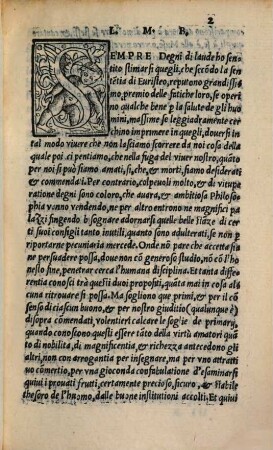 2
L. M. B.
SEMPRE Degni di laude ho sen
tito stimarsi quegli, che secõdo la sen
tẽtia di Euristeo, reputono grandissi
mo, premio delle fatiche loro, se opero
no qualche bene p la salute de gli huo
mini, massime se leggiadramente cer
chino imprimere in quegli, dover si in
tal modo vivere che non lasciamo scorrere da noi cosa della
quale poi ci pentiamo, che nella fuga del viver nostro, quãto
per noi si può siamo amati, si, che, & morti, siamo desiderati
& commendati. Per contrario, colpevoli molto, & di vitupe
ratione degni sono coloro, che avara, & ambitiosa Philoso-
phia vanno vendendo, ne per altro entrono ne magnifici pa
lazzi fingendo bisognare adornarsi quelle belle stãze di cer
ti suoi consigli tanto inutili, quanto sono adulterati, se non p
riportarne pecuniaria mercede. Onde nõ pare che accetta sia
ne persuadere possa, dove non cõ generoso studio, nõ cõ l'ho
nesto fine, penetrar cerca l'humana disciplina. Et tanta diffe
rentia conosciti trà questi duoi propositi, quãta mai in cosa al
cuna ritrovare si possa. Ma sogliono que primi, & per il cõ
senso di ciascun buono, & per nostro giuditio (qualunque è)
disopra comendati, volentieri calcare le soglie de primary,
quando conoscono questi essere tãto della virtù amatori quã
to di nobilita, di magnificentia, & richezza antecedono gli
altri, non con arrogantia per insegnare, ma per vno attratti
vo cõmertio, per vna gioconda confabulatione d'esaminarsi
quivi i provati frutti, certamente precioso, sicuro, & stabile
thesoro de l'huomo, dalle buone institutioni accolti. Et quivi